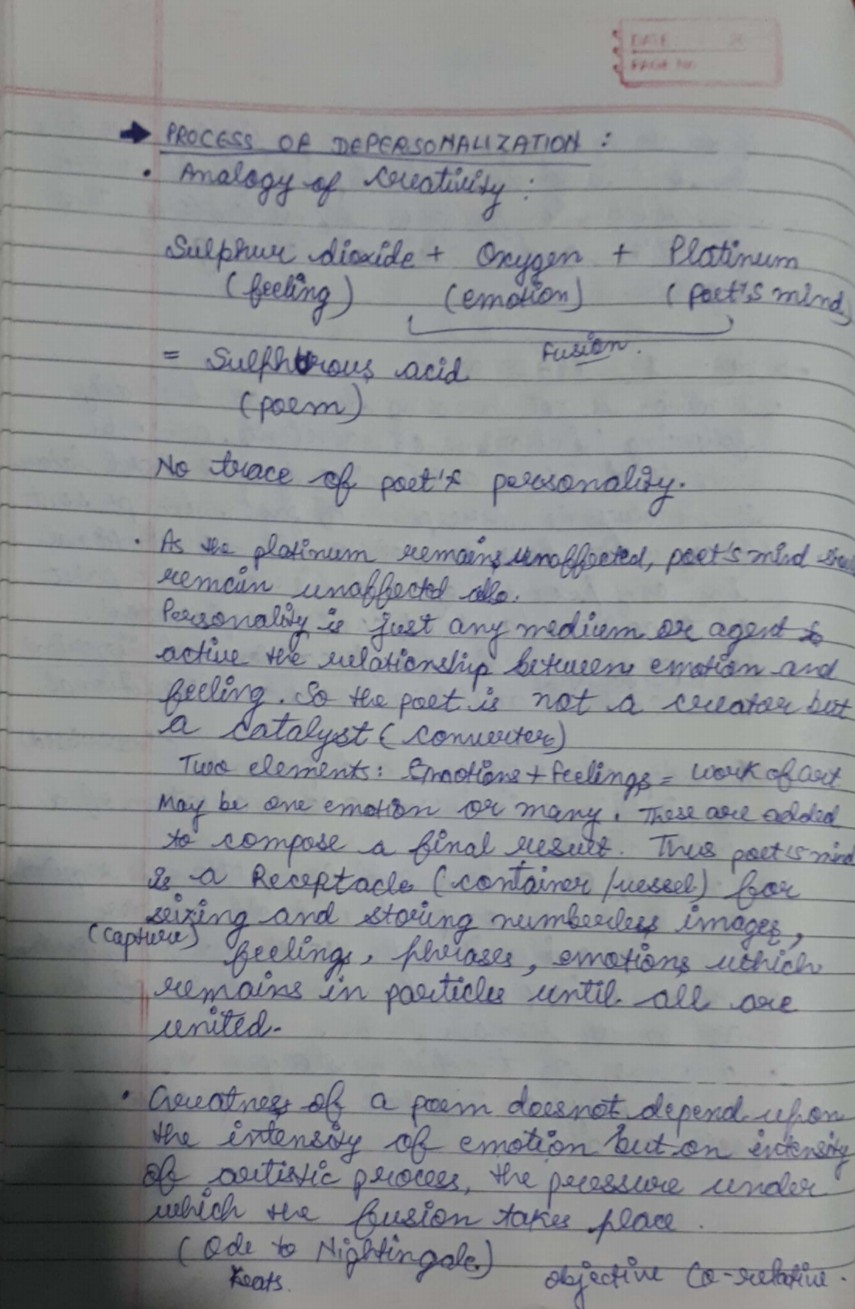 DATE
PAGE NO.
PROCESS OF DEPERSONALIZATION :
• Analogy of Creativity :
Sulphur dioxide + Oxygen + Platinum
(feeling) (emotion) (poet's mind)
Fusion.
= Sulphurous acid
(poem)
No trace of poet's personality.
• As the platinum remains unaffected, poet's mind
remain unaffected also.
Personality is just any medium or agent to
active the relationship between emotion and
feeling. So the poet is not a creator but
a catalyst (converter)
Two elements: Emotions + feelings = work of art
May be one emotion or many. These are added
to compose a final result. Thus poet's mind
is a Receptacle (container/vessel) for
seizing and storing numberless images,
(capture) feelings, phrases, emotions which
remains in particles until all are
united.
• Greatness of a poem doesnot depend upon
the intensity of emotion but on intensity
of artistic process, the pressure under
which the fusion takes place.
(Ode to Nightingale)
Keats. objective Co-relative.